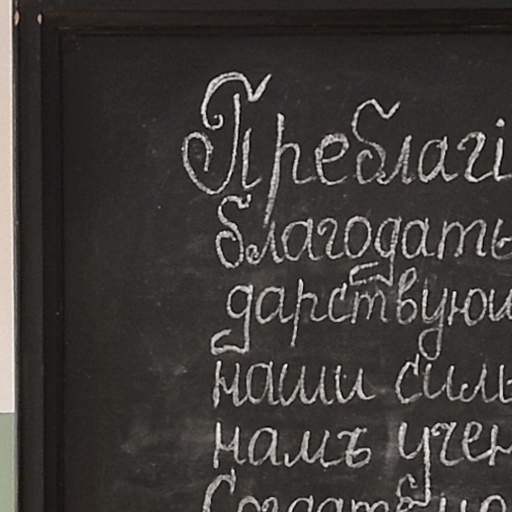 Преблагі
благодать
дарствующ
наши силы
намъ учен